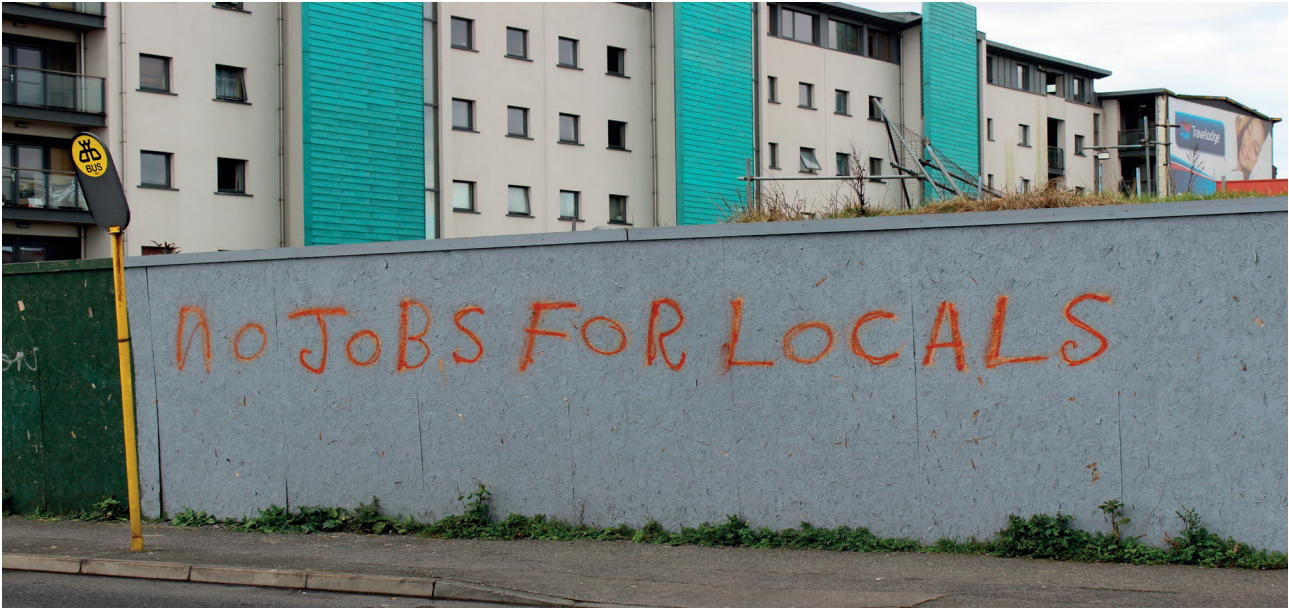 BUS
Travelodge
ON
nO JOBS FOR LOCALS